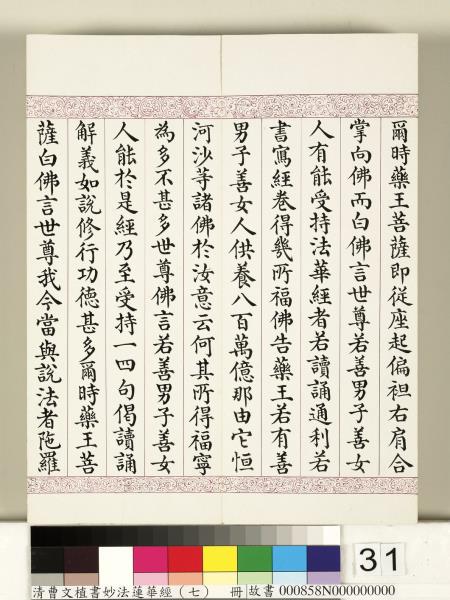 爾時藥王菩薩即從座起偏袒右肩合
掌向佛而白佛言世尊若善男子善女
人有能受持法華經者若讀誦通利若
書寫經卷得幾所福佛告藥王若有善
男子善女人供養八百萬億那由它恒
河沙等諸佛於汝意云何其所得福寧
為多不甚多世尊佛言若善男子善女
人能於是經乃至受持一四句偈讀誦
解義如說修行功德甚多爾時藥王菩
薩白佛言世尊我今當與說法者陁羅
31
清曹文植書妙法蓮華經（七） 冊 故書 000858N000000000